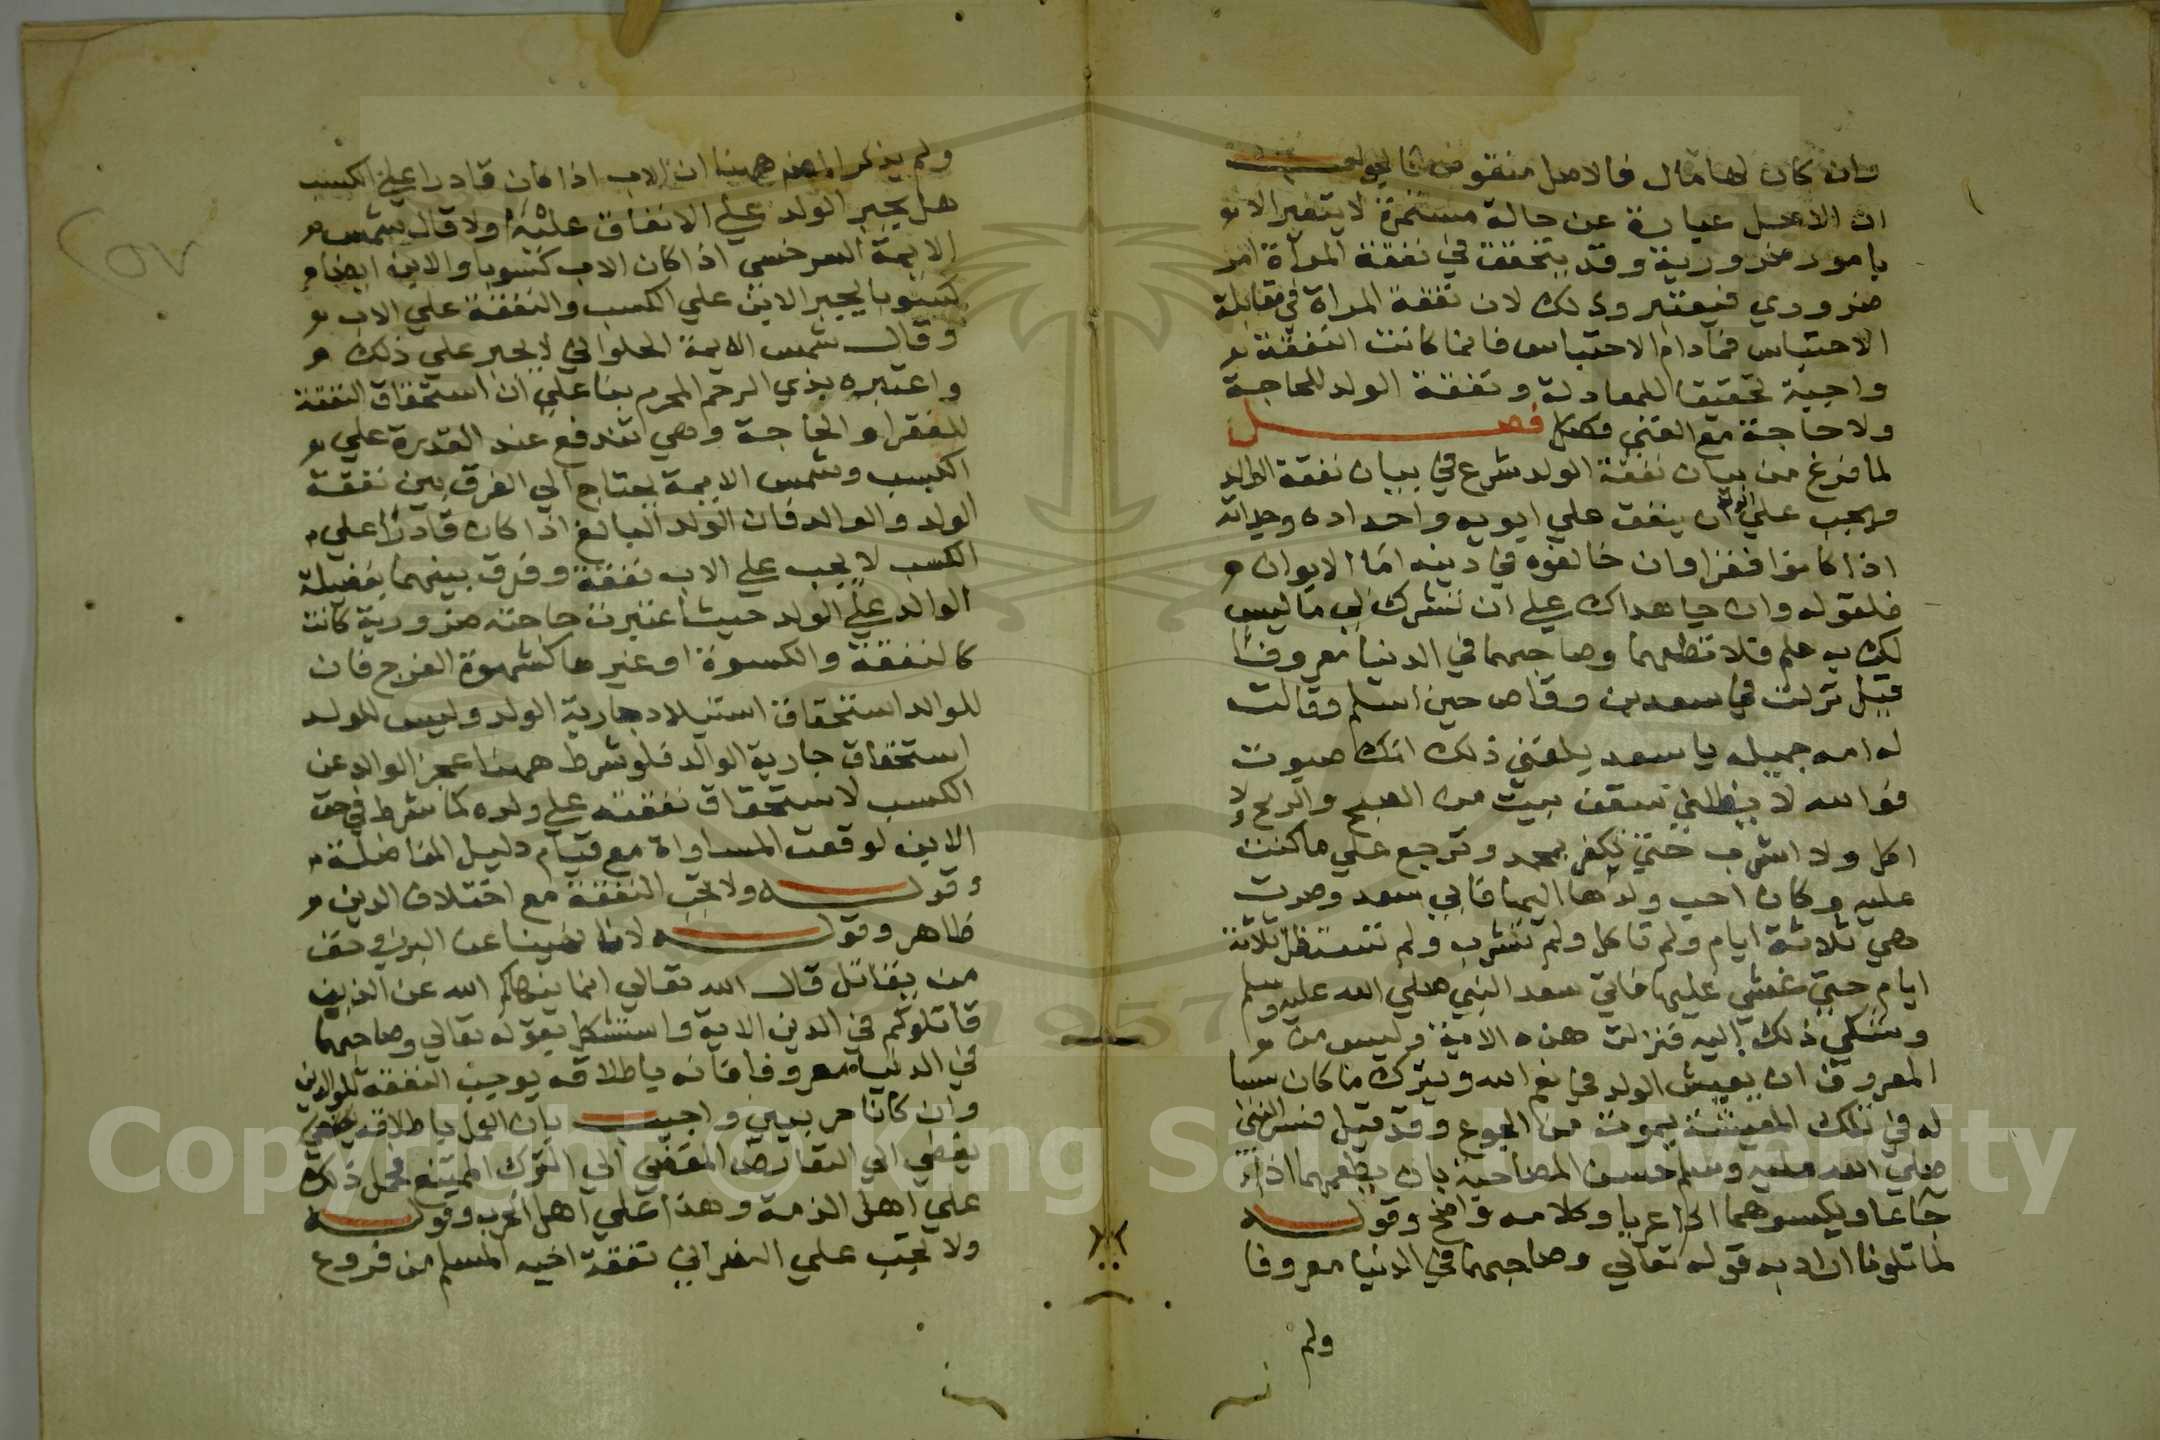 وان كان لها مال فالاصل منقوض فالجواب
ان الاصل عبارة عن حالة مستمرة لا يتغير الا
بامور ضرورية وقد يتحقق في نفقة المراة امر
ضروري فيعتبر وذلك لان نفقة المراة في مقابلة
الاحتباس فمادام الاحتباس قائما كانت النفقة
واجبة تحقيقا للمعادلة ونفقة الولد للحاجة
ولا حاجة مع الغني فصل
لما فرغ من بيان نفقة الولد شرع في بيان نفقة الوالد
ويجب علي ان ينفق علي ابويه واجداده وجداته
اذا كانوا فقرا وان خالفوه في دينه اما الابوان
فلقوله وان جاهداك علي ان تشرك بي ما ليس
لك به علم فلا تطعهما وصاحبهما في الدنيا معروفا
قيل نزلت في سعد بن وقاص حين اسلم وقالت
له امه جميله يا سعد بلغني ذلك انك صبوت
فوالله لا يظلني سقف بيت من الضح والريح لا
اكل ولا اشرب حتي تكفر بمحمد وترجع علي ما كنت
عليه وكان احب ولدها اليها فابي سعد وصبرت
هي ثلاثة ايام ولم تاكل ولم تشرب ولم تستظل ثلاثة
ايام حتي غشي عليها فاتي سعد النبي صلي الله عليه وسلم
وشكي ذلك اليه فنزلت هذه الاية وليس من
المعروف ان يعيش الولد في نعم الله ويترك ما كان سببا
له في تلك المعيشة يموت من الجوع وقد قيل فسر النبي
صلي الله عليه وسلم حسن المصاحبة بان يطعمهما اذا
جاعا ويكسوهما اذا عريا وكلامه واضح وقوله
لما تلونا اراد به قوله تعالي وصاحبهما في الدنيا معروفا
ولم
ولم يذكر المصنف ههنا ان الاب اذا كان قادرا علي الكسب
هل يجبر الولد علي الانفاق عليه اولا قال شمس
الايمة السرخسي اذا كان الاب كسوبا والابن ايضا
كسوبا يجبر الابن علي الكسب والنفقة علي الاب
وقال شمس الايمة الحلواني لا يجبر علي ذلك
واعتبره بذي الرحم المحرم بنا علي ان استحقاق النفقة
للفقرا والحاجة وهي تندفع عند القدرة علي
الكسب وشمس الايمة يحتاج الي الفرق بين نفقة
الولد والوالد فان الولد البالغ اذا كان قادرا علي
الكسب لا يجب علي الاب نفقة وفرق بينهما بفضيلة
الوالد علي الولد حيث اعتبرت حاجته ضرورية كانت
كالنفقة والكسوة او غيرها كشهوة الفرج فان
للوالد استحقاق استيلاد جارية الولد وليس للولد
استحقاق جارية الوالد فلو شرط ههنا عجز الوالد عن
الكسب لاستحقاق نفقته علي ولده كما شرط في حق
الابن لوقعت المساواة مع قيام دليل المفاضلة
وقوله ولا تجب النفقة مع اختلاف الدين
ظاهر وقوله لانا نهينا عن البر في حق
من يقاتل قال الله تعالي انما ينهاكم الله عن الذين
قاتلوكم في الدين الاية واستشكل بقوله تعالي وصاحبهما
في الدنيا معروفا فانه باطلاقه يوجب النفقة للوالدين
وان كانا حربيين واجيب بان العمل باطلاقه
يفضي الي التعارض المفضي الي الترك الممتنع فحمل ذلك
علي اهل الذمة وهذا علي اهل الحرب وقوله
ولا تجب علي النصراني نفقة اخيه المسلم من فروع
Copyright © King Saud University
1957